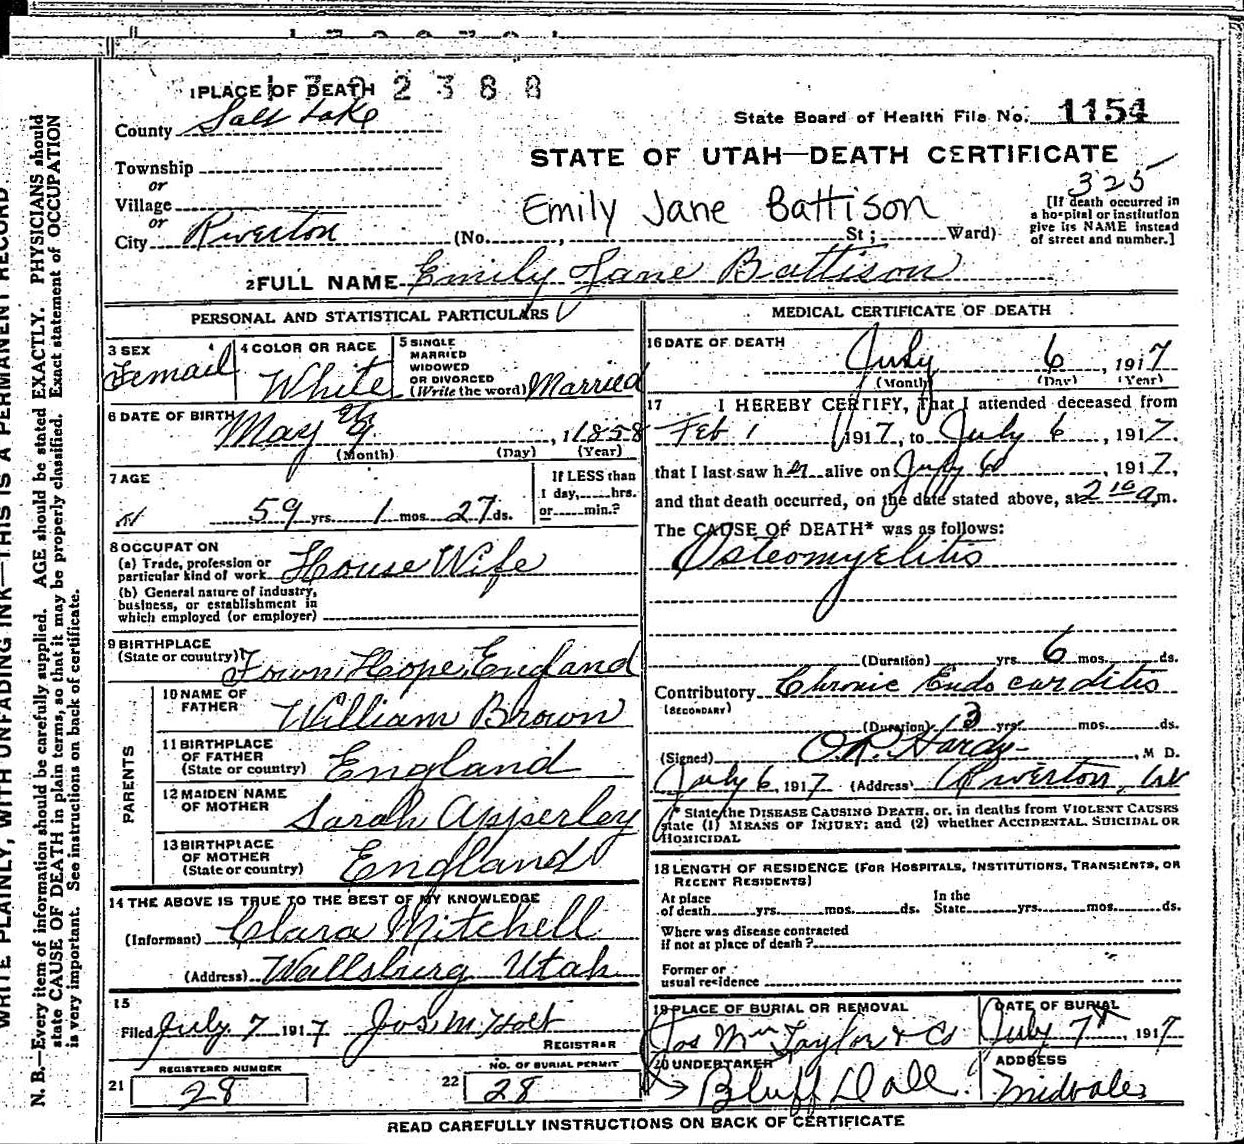 1702388
1 PLACE OF DEATH
County Salt Lake
State Board of Health File No. 1154
STATE OF UTAH—DEATH CERTIFICATE
Township
or
Village
or
City Riverton
325
Emily Jane Battison
(No. , St; Ward)
[If death occurred in
a hospital or institution
give its NAME instead
of street and number.]
2 FULL NAME Emily Jane Battison
PERSONAL AND STATISTICAL PARTICULARS
3 SEX Femail
4 COLOR OR RACE White
5 SINGLE
MARRIED
WIDOWED
OR DIVORCED
(Write the word) Married
6 DATE OF BIRTH May 9, 1858
(Month) (Day) (Year)
7 AGE
59 yrs. 1 mos. 27 ds.
If LESS than
1 day, hrs.
or min.?
8 OCCUPATON
(a) Trade, profession or
particular kind of work House Wife
(b) General nature of industry,
business, or establishment in
which employed (or employer)
9 BIRTHPLACE
(State or country) Town Hope, England
PARENTS
10 NAME OF
FATHER William Brown
11 BIRTHPLACE
OF FATHER
(State or country) England
12 MAIDEN NAME
OF MOTHER Sarah Apperley
13 BIRTHPLACE
OF MOTHER
(State or country) England
14 THE ABOVE IS TRUE TO THE BEST OF MY KNOWLEDGE
(Informant) Clara Mitchell
(Address) Wallsburg Utah
15
Filed July 7 1917 Jos. M. Holt
REGISTRAR
REGISTERED NUMBER
21 28
NO. OF BURIAL PERMIT
22 28
MEDICAL CERTIFICATE OF DEATH
16 DATE OF DEATH
July 6, 1917
(Month) (Day) (Year)
17 I HEREBY CERTIFY, That I attended deceased from
Feb 1 1917, to July 6, 1917.
that I last saw her alive on July 6, 1917,
and that death occurred, on the date stated above, at 2 10 a.m.
The CAUSE OF DEATH* was as follows:
Osteomyelitis
(Duration) yrs. 6 mos. ds.
Contributory Chronic Endocarditis
(SECONDARY)
(Duration) 13 yrs. mos. ds.
(Signed) O.R. Hardy, M D.
July 6, 1917 (Address) Riverton,
* State the DISEASE CAUSING DEATH, or, in deaths from VIOLENT CAUSES
state (1) MEANS OF INJURY; and (2) whether ACCIDENTAL, SUICIDAL OR
HOMICIDAL
18 LENGTH OF RESIDENCE (FOR HOSPITALS, INSTITUTIONS, TRANSIENTS, OR
RECENT RESIDENTS)
At place
of death yrs. mos. ds.
In the
State yrs. mos. ds.
Where was disease contracted
if not at place of death?
Former or
usual residence
19 PLACE OF BURIAL OR REMOVAL
Jos Wm Taylor & Co
DATE OF BURIAL
July 7, 1917
20 UNDERTAKER
Bluff Dale
ADDRESS
Midvale
READ CAREFULLY INSTRUCTIONS ON BACK OF CERTIFICATE
WRITE PLAINLY, WITH UNFADING INK—THIS IS A PERMANENT RECORD
N. B.—Every item of information should be carefully supplied. AGE should be stated EXACTLY. PHYSICIANS should
state CAUSE OF DEATH in plain terms, so that it may be properly classified. Exact statement of OCCUPATION
is very important. See instructions on back of certificate.